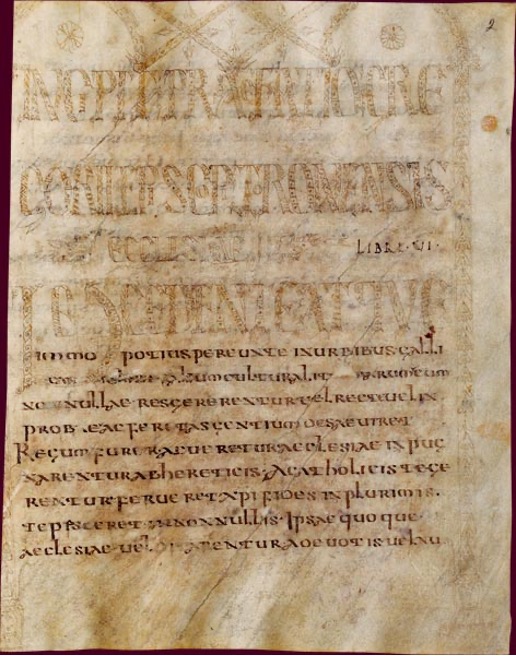 2
INCIPIT PRAEFATIO GRE
GORII EPI SCOP TRONENSIS
ECCLESIAE
LIBRI · VI ·
DECEDENTE ATQUE
immo potius pereunte in urbibus galli
cultura lit
nonnullae res gererentur vel rectae vel in
prob eac feritas gentium desaeviret
Regum furor acueretur aeclesiae inpug
narentur ab hereticis · a catholicis tege
rentur ferveret xpi fides in plurimis ·
tepesceret in nonnullis · Ipsae quoque
aeclesiae vel ditarentur a devotis vel nu